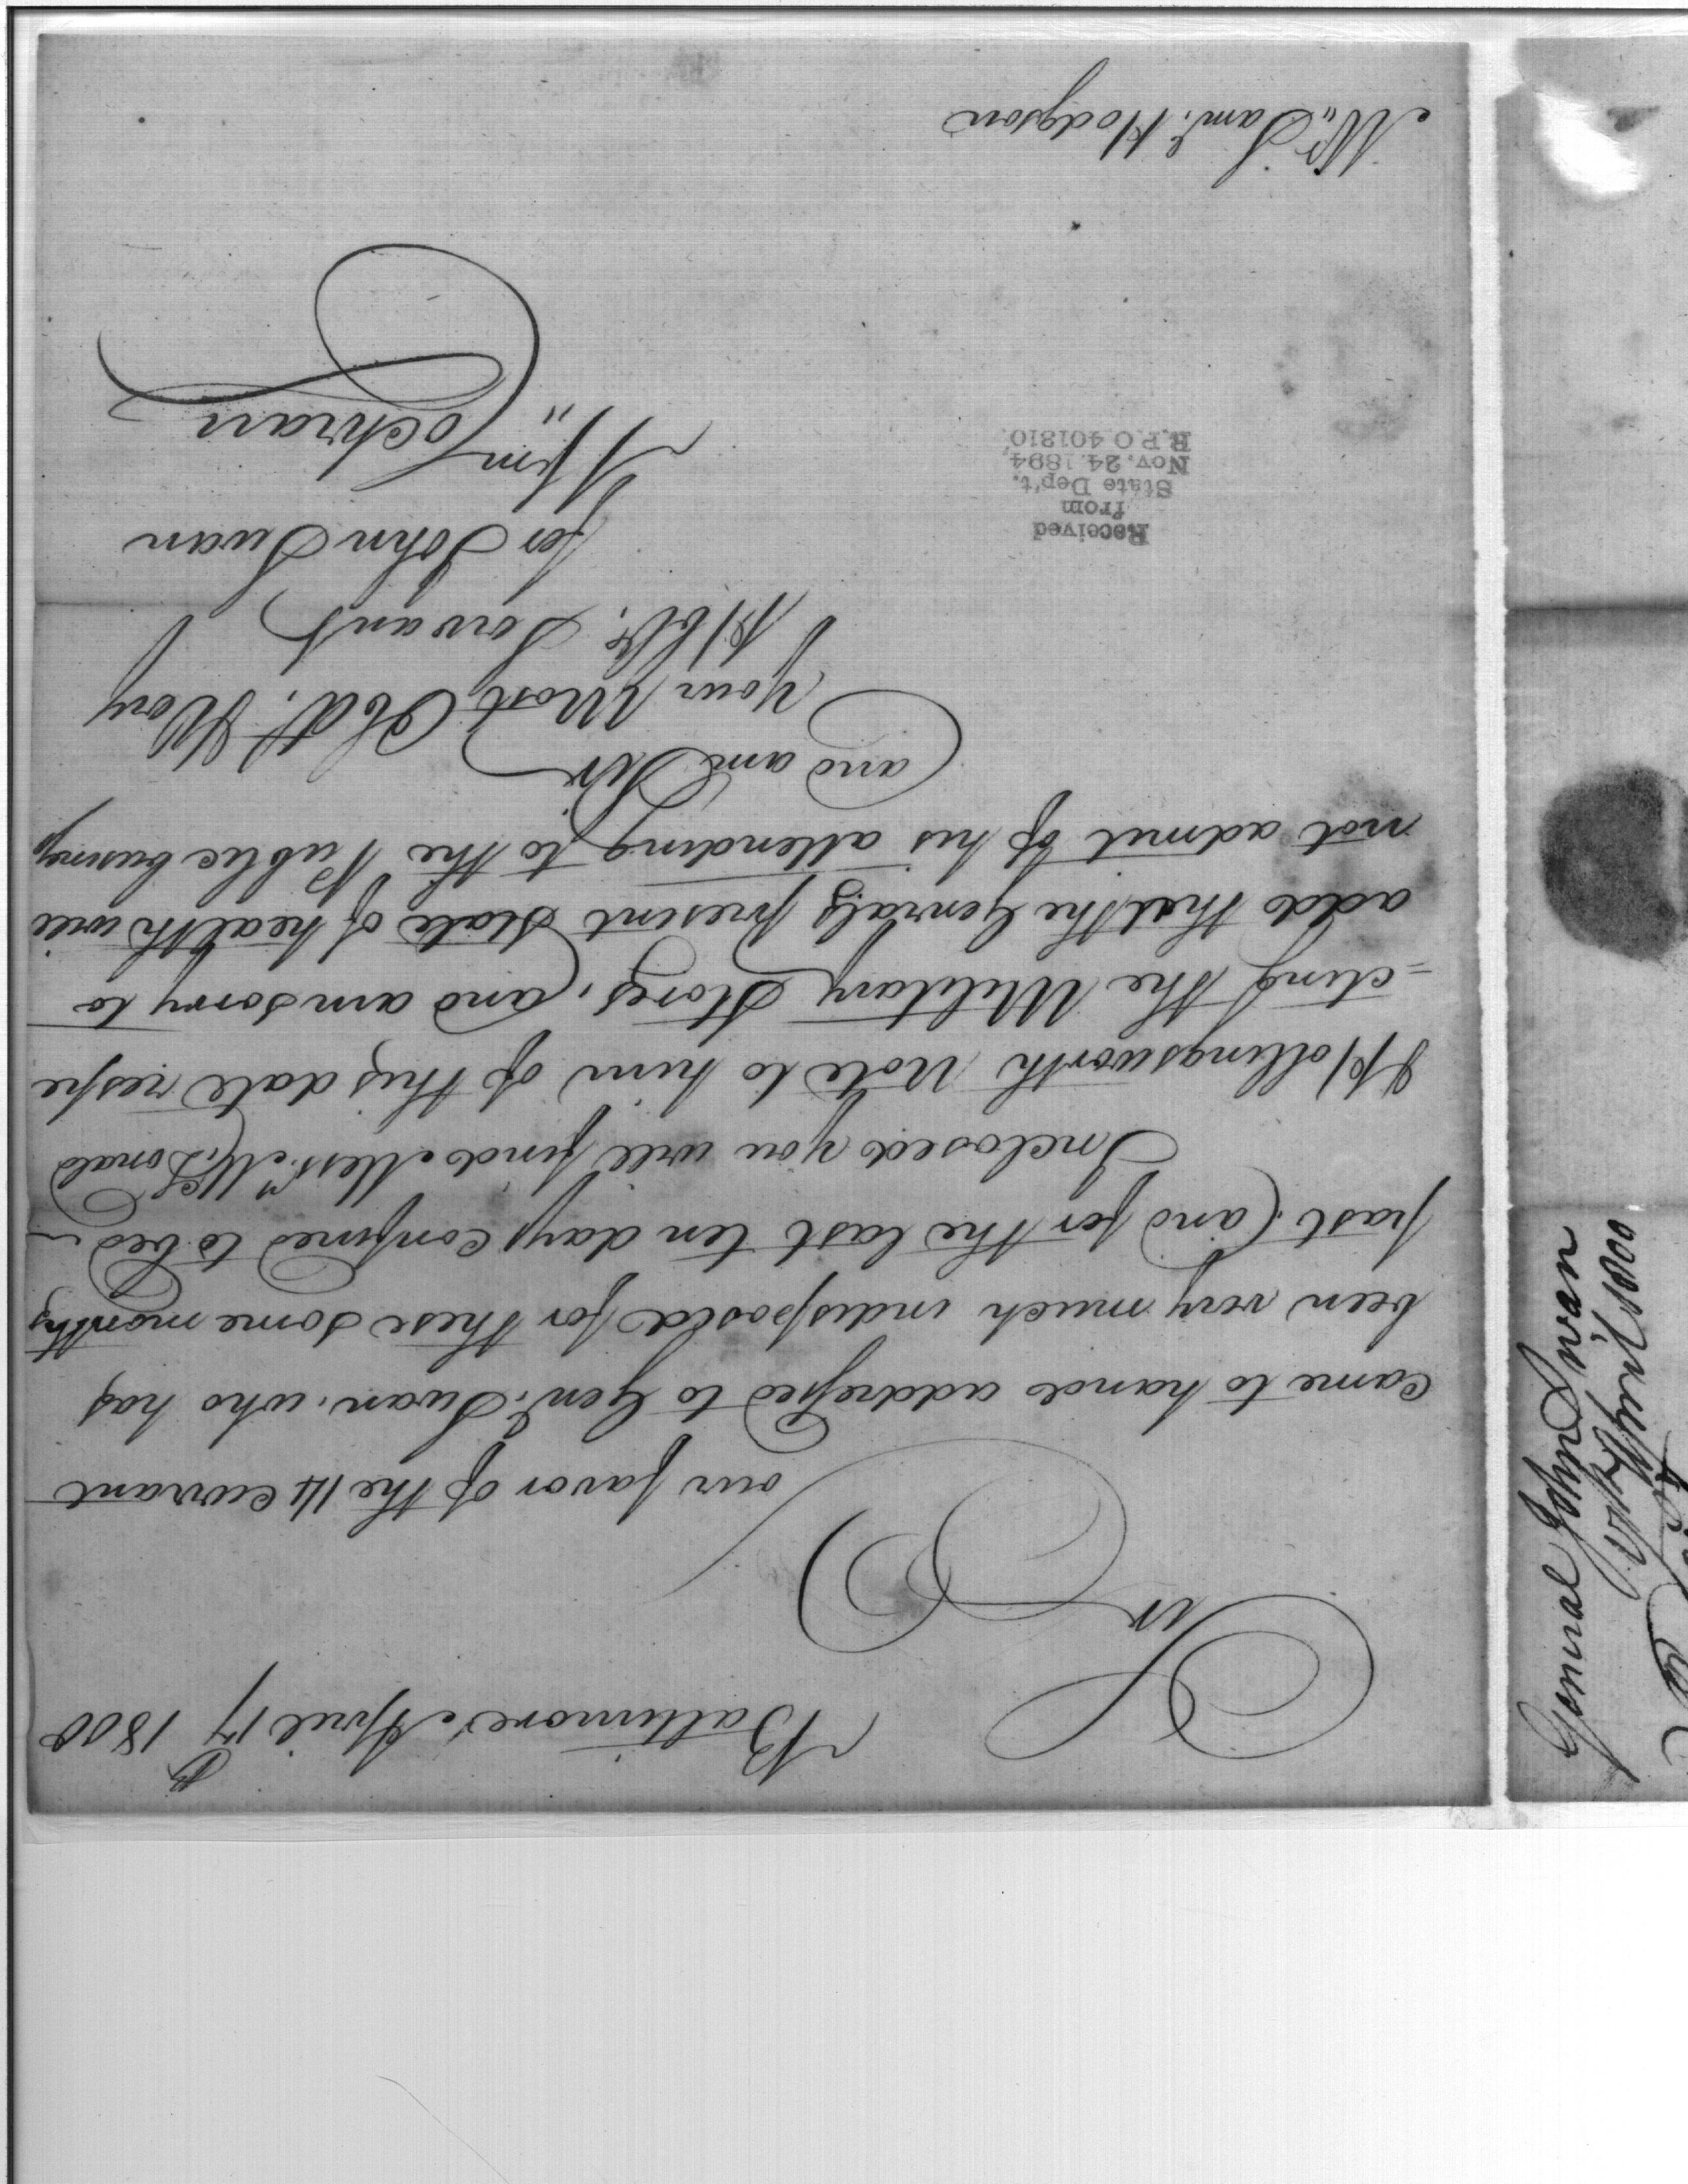 Baltimore April 17 1800
Sir
our favor of the 14 currant
came to hand addressed to Genl. Swan, who has
been very much indisposed for these some months
past (and for the last ten days confined to bed
Inclosed you will find Messrs. McDonald
Hollingsworth Note to him of this date respe
=cting the Military Stores, and am sorry to
add that the Genrals present state of health will
not admit of his attending to the Public business
and am Sir
Your Most Obdt. Very
Hble. Servant
for John Swan
Wm Cochran
Received
from
State Dep't.
Nov. 24 1894,
R.P.O 401810.
Mr. Saml. Hodgson
General John Swan
17 April 1800